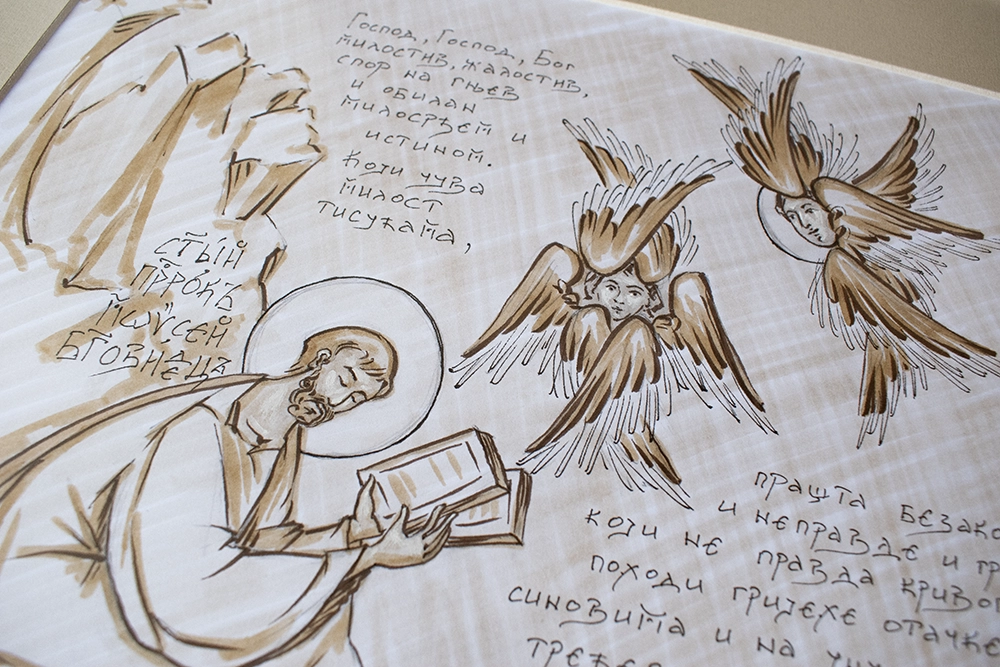 Господ, Господ, Бог
милостив, жалостив,
спор на гњев
и обилан
милосрђем и
истином.
Који чува
милост
тисућама,
стыи
пррокъ
мѡѵсеи
бговидецъ
прашта безако
и неправде и гр
који не правда криво
походи гријехе отачке
синовима и на
треће